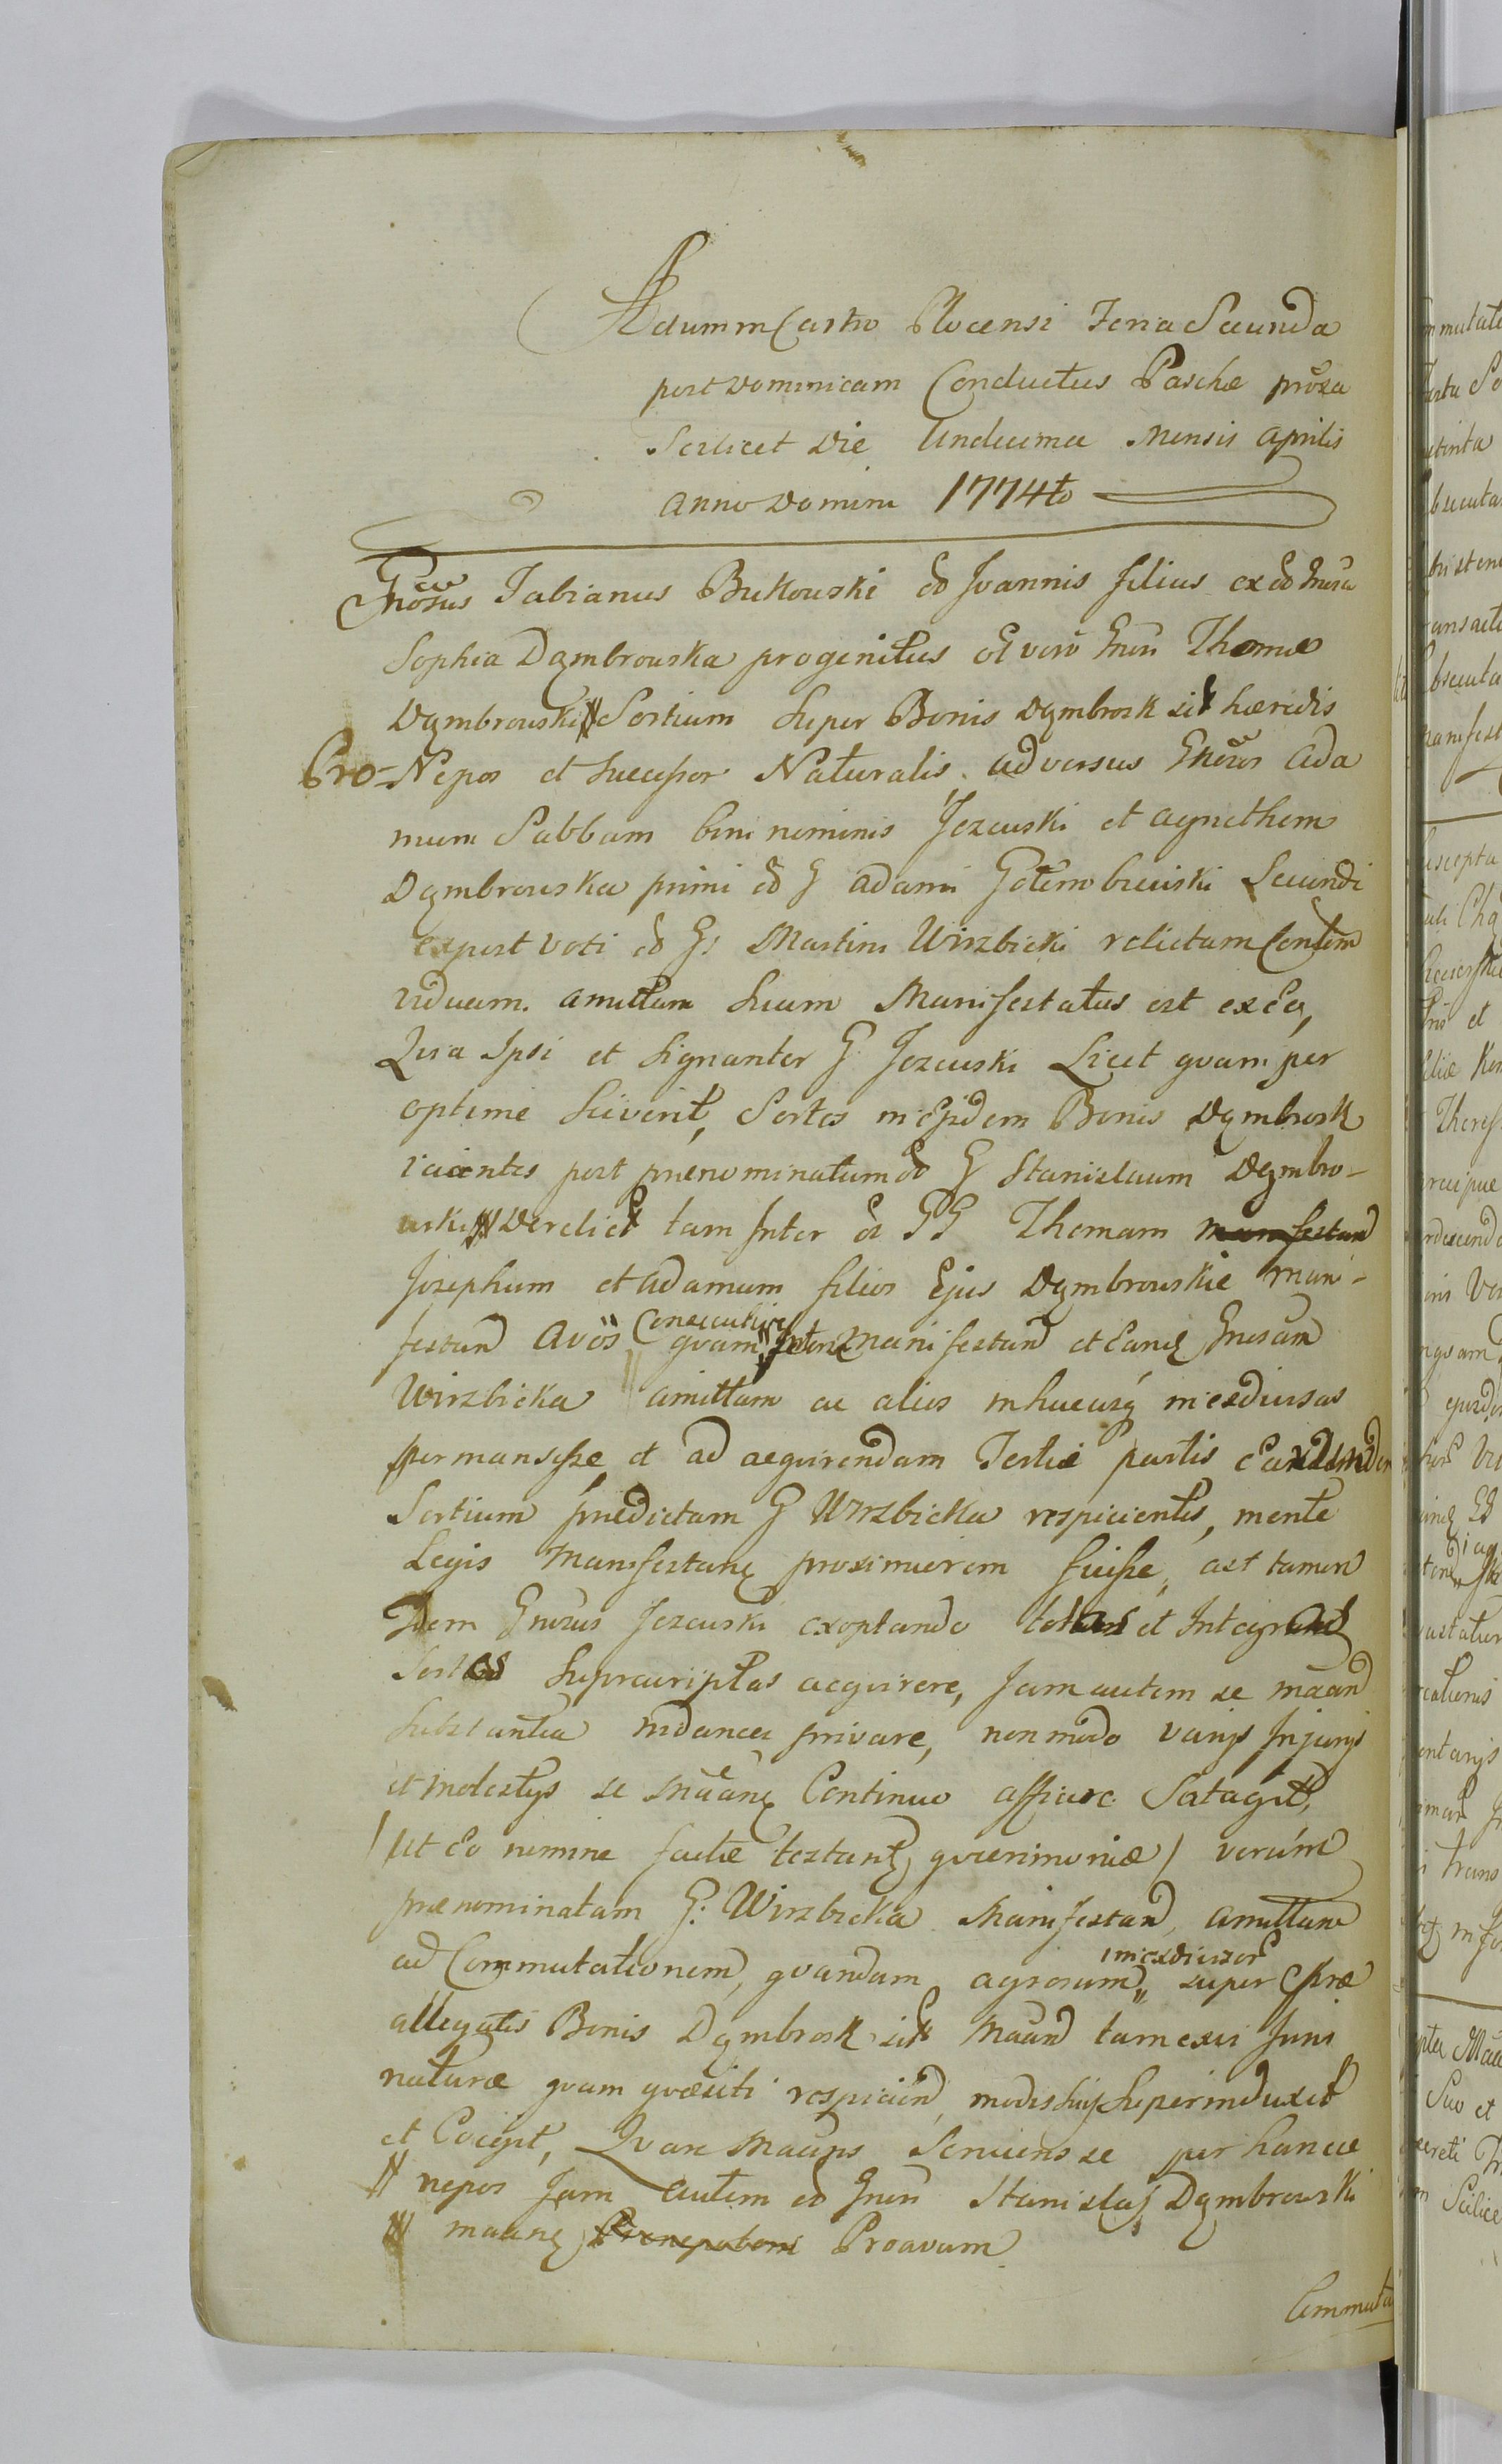 Actum in Castro Plocensi Feria Secunda
post Dominicam Conductus Paschæ proxa
Scilicet Die Undecima Mensis Aprilis
Anno Domini 1774to
Gnosus Fabianus Bukowski od Joannis filius ex od Gnosa
Sophia Dąmbrowska progenitus ol vero Gnsi Thomæ
Dąmbrowski // Sortium super Bonis Dąmbrosk sit hæredis
Pro-Nepos et Successor Naturalis, adversus Gnosos Ada
mum Sabbam bini nominis Jezewski et Agnethem
Dąmbrowska primi od G Adami Gołembiewski Secundi
expost voti od G: Martini Wirzbicki relictam Contem
viduam. amittam suam Manifestatus est ex eo,
Quia Ipsi et signanter G. Jezewski Licet quam per
optime sciverit, Sortes in ejsdem Bonis Dąmbrosk
iacentes post prænominatum od G Stanislaum Dąmbro-
wski /// derelict tam Inter ol GG Thomam
Josephum et Adamum filios Ejus Dąmbrowskie mani-
festan Avös Consecutive quam Inter Manifestan et eanq Gnosam
Wirzbicka amittam ac alios inhucusq inexdivisas
permansisse et ad acquirendam Tertiæ partis earundem
Sortium prædictam G Wirzbicka respicientis, mente
Legis Manifestanq proximiorem fuisse, ast tamen
Idem Gnosus Jezewski exoptando totas et Integras
Sortes suprascriptas acquirere, Jam autem se maan
substantia indancu privare, non modo varijs Injurijs
et molestijs se maanq Continuo afficere Satagit,
/ ut Eo nomine factæ testant querimoniæ / verum
prænominatam G: Wirzbicka Manifestan amittam
ad Commutationem, quandam agrorum inexdivisor super præ
allegatis Bonis Dąmbrosk sit Maan tam ex vi Juris
naturæ quam quæsiti respicien, modis suis superinduxit
et Coegit, Quare Maans Serviens se per hance
// nepos Jam autem od Gnsi Stanislaj Dąmbrowski
/// maanq Pronepotem Proavum
Commuta